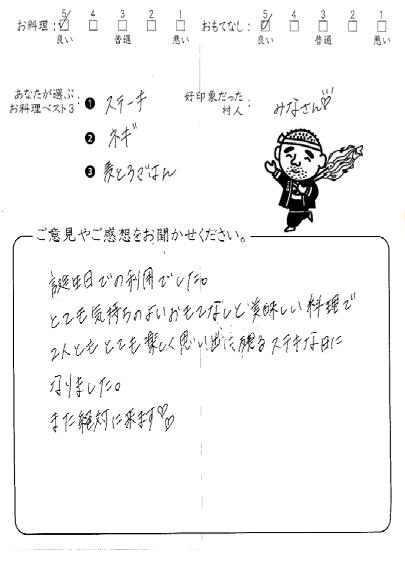 お料理： 5 4 3 2 1
良い 普通 悪い
おもてなし： 5 4 3 2 1
良い 普通 悪い
あなたが選ぶ
お料理ベスト3：
❶ ステーキ
❷ ネギ
❸ 麦とろごはん
好印象だった
村人：
みなさん♡
ご意見やご感想をお聞かせください。
誕生日での利用でした。
とても気持ちのよいおもてなしと美味しい料理で
2人ともとても楽しく思い出に残るステキな日に
なりました。
また絶対に来ます♡♡